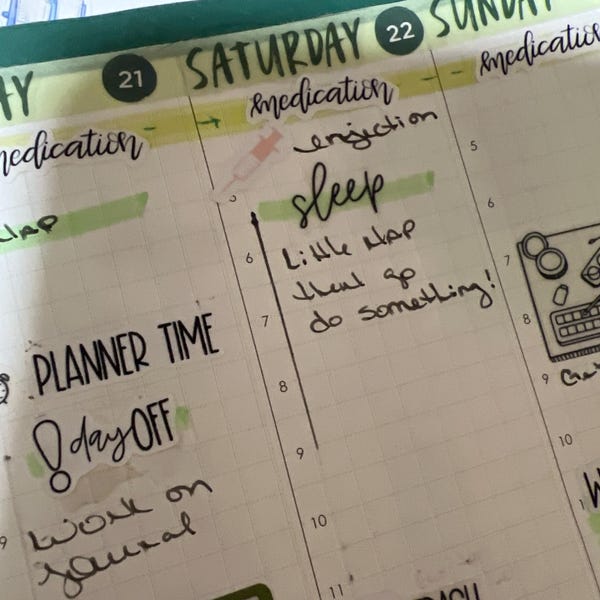 AY 21
medication
Nap
PLANNER TIME
! day OFF
Work on
journal
9
SATURDAY 22
medication
enjection
sleep
Little Nap
then go
do something!
6
7
8
9
10
11
SUNDAY
medication
5
6
7
8
9
10